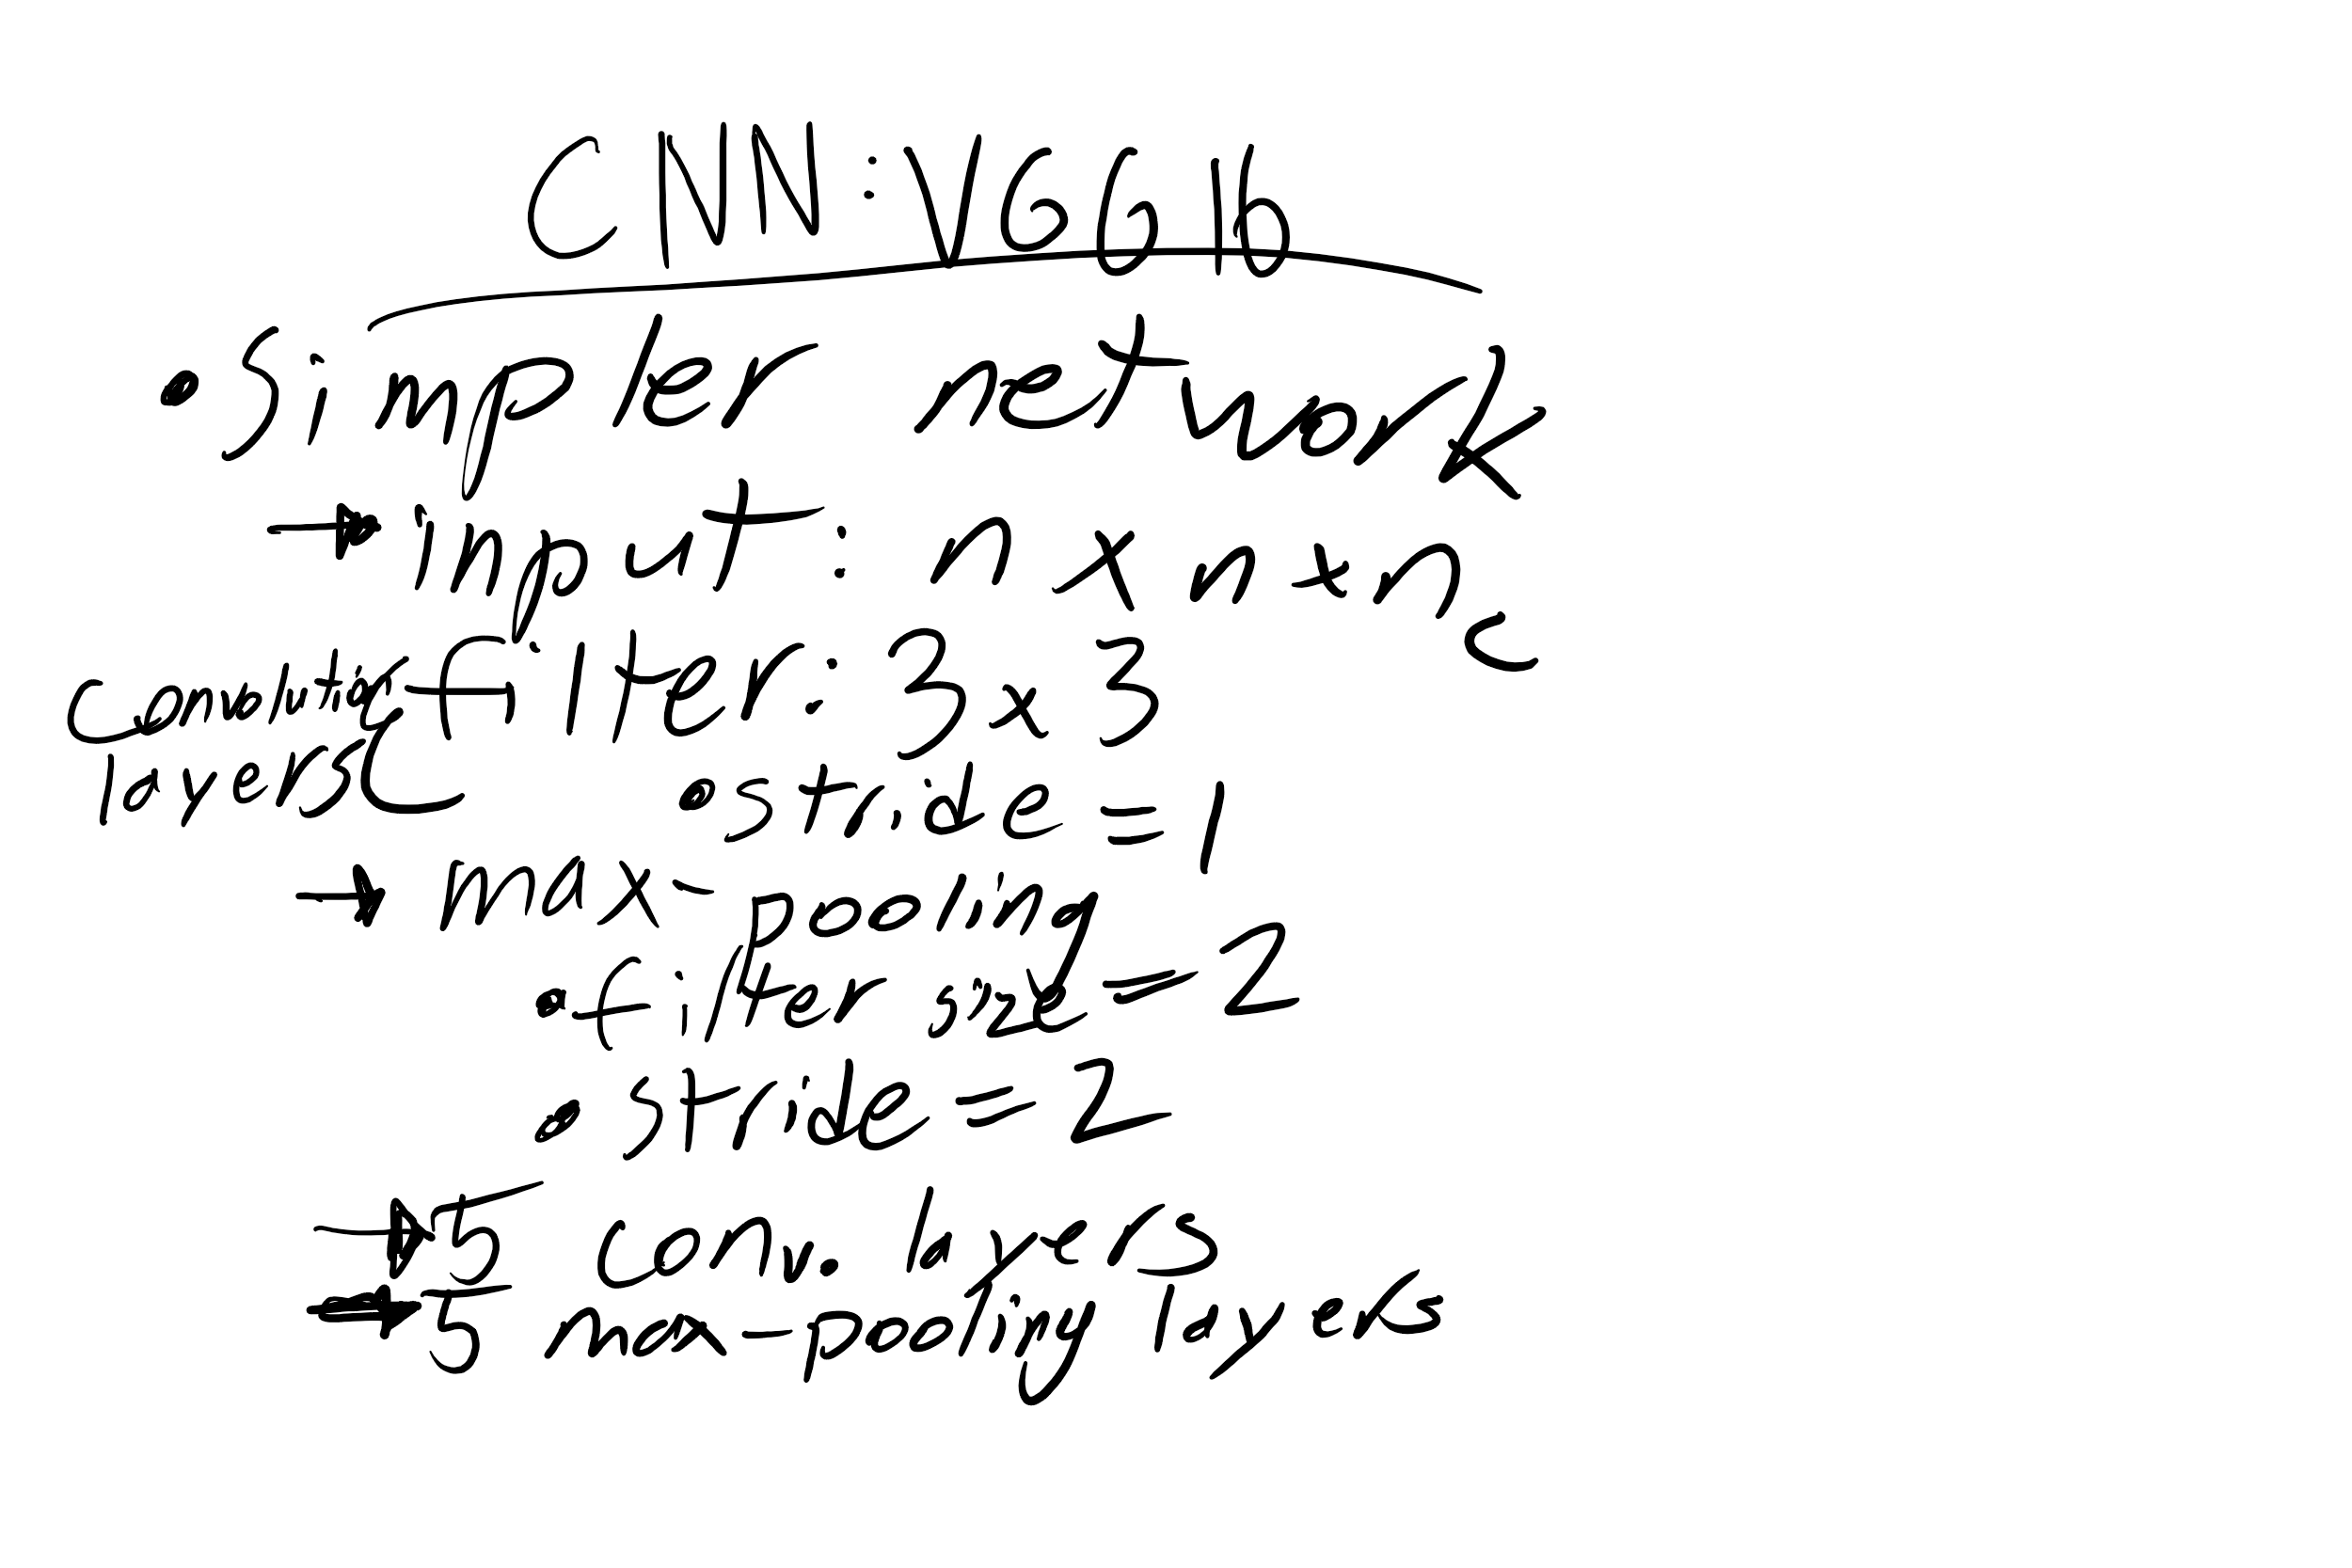 CNN: VGG16
• Simpler network
→ input: n x n x nc
Convolution layers
filter: 3x3
• stride = 1
→ max-pooling
• filter size = 2
• stride = 2
→ 5 conv. layers
→ 5 max-pooling layers